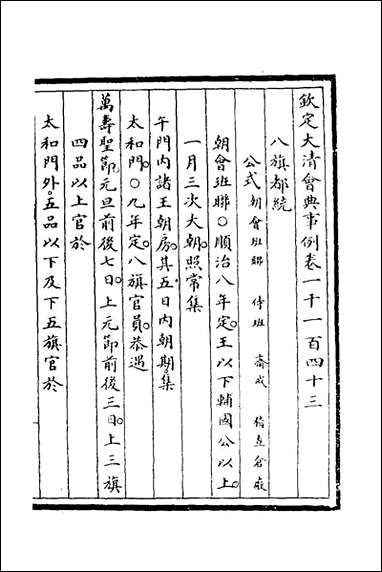 欽定大清會典事例卷一千一百四十三
八旗都統
公式 朝會班聯 侍班 齋戒 修立倉廒
朝會班聯○順治八年定。王以下輔國公以上。
一月三次大朝。照常集
午門內諸王朝房。其五日內朝期。集
太和門。○九年定。八旗官員。恭遇
萬壽聖節。元旦前後七日。上元節前後三日。上三旗
四品以上官於
太和門外。五品以下及下五旗官於